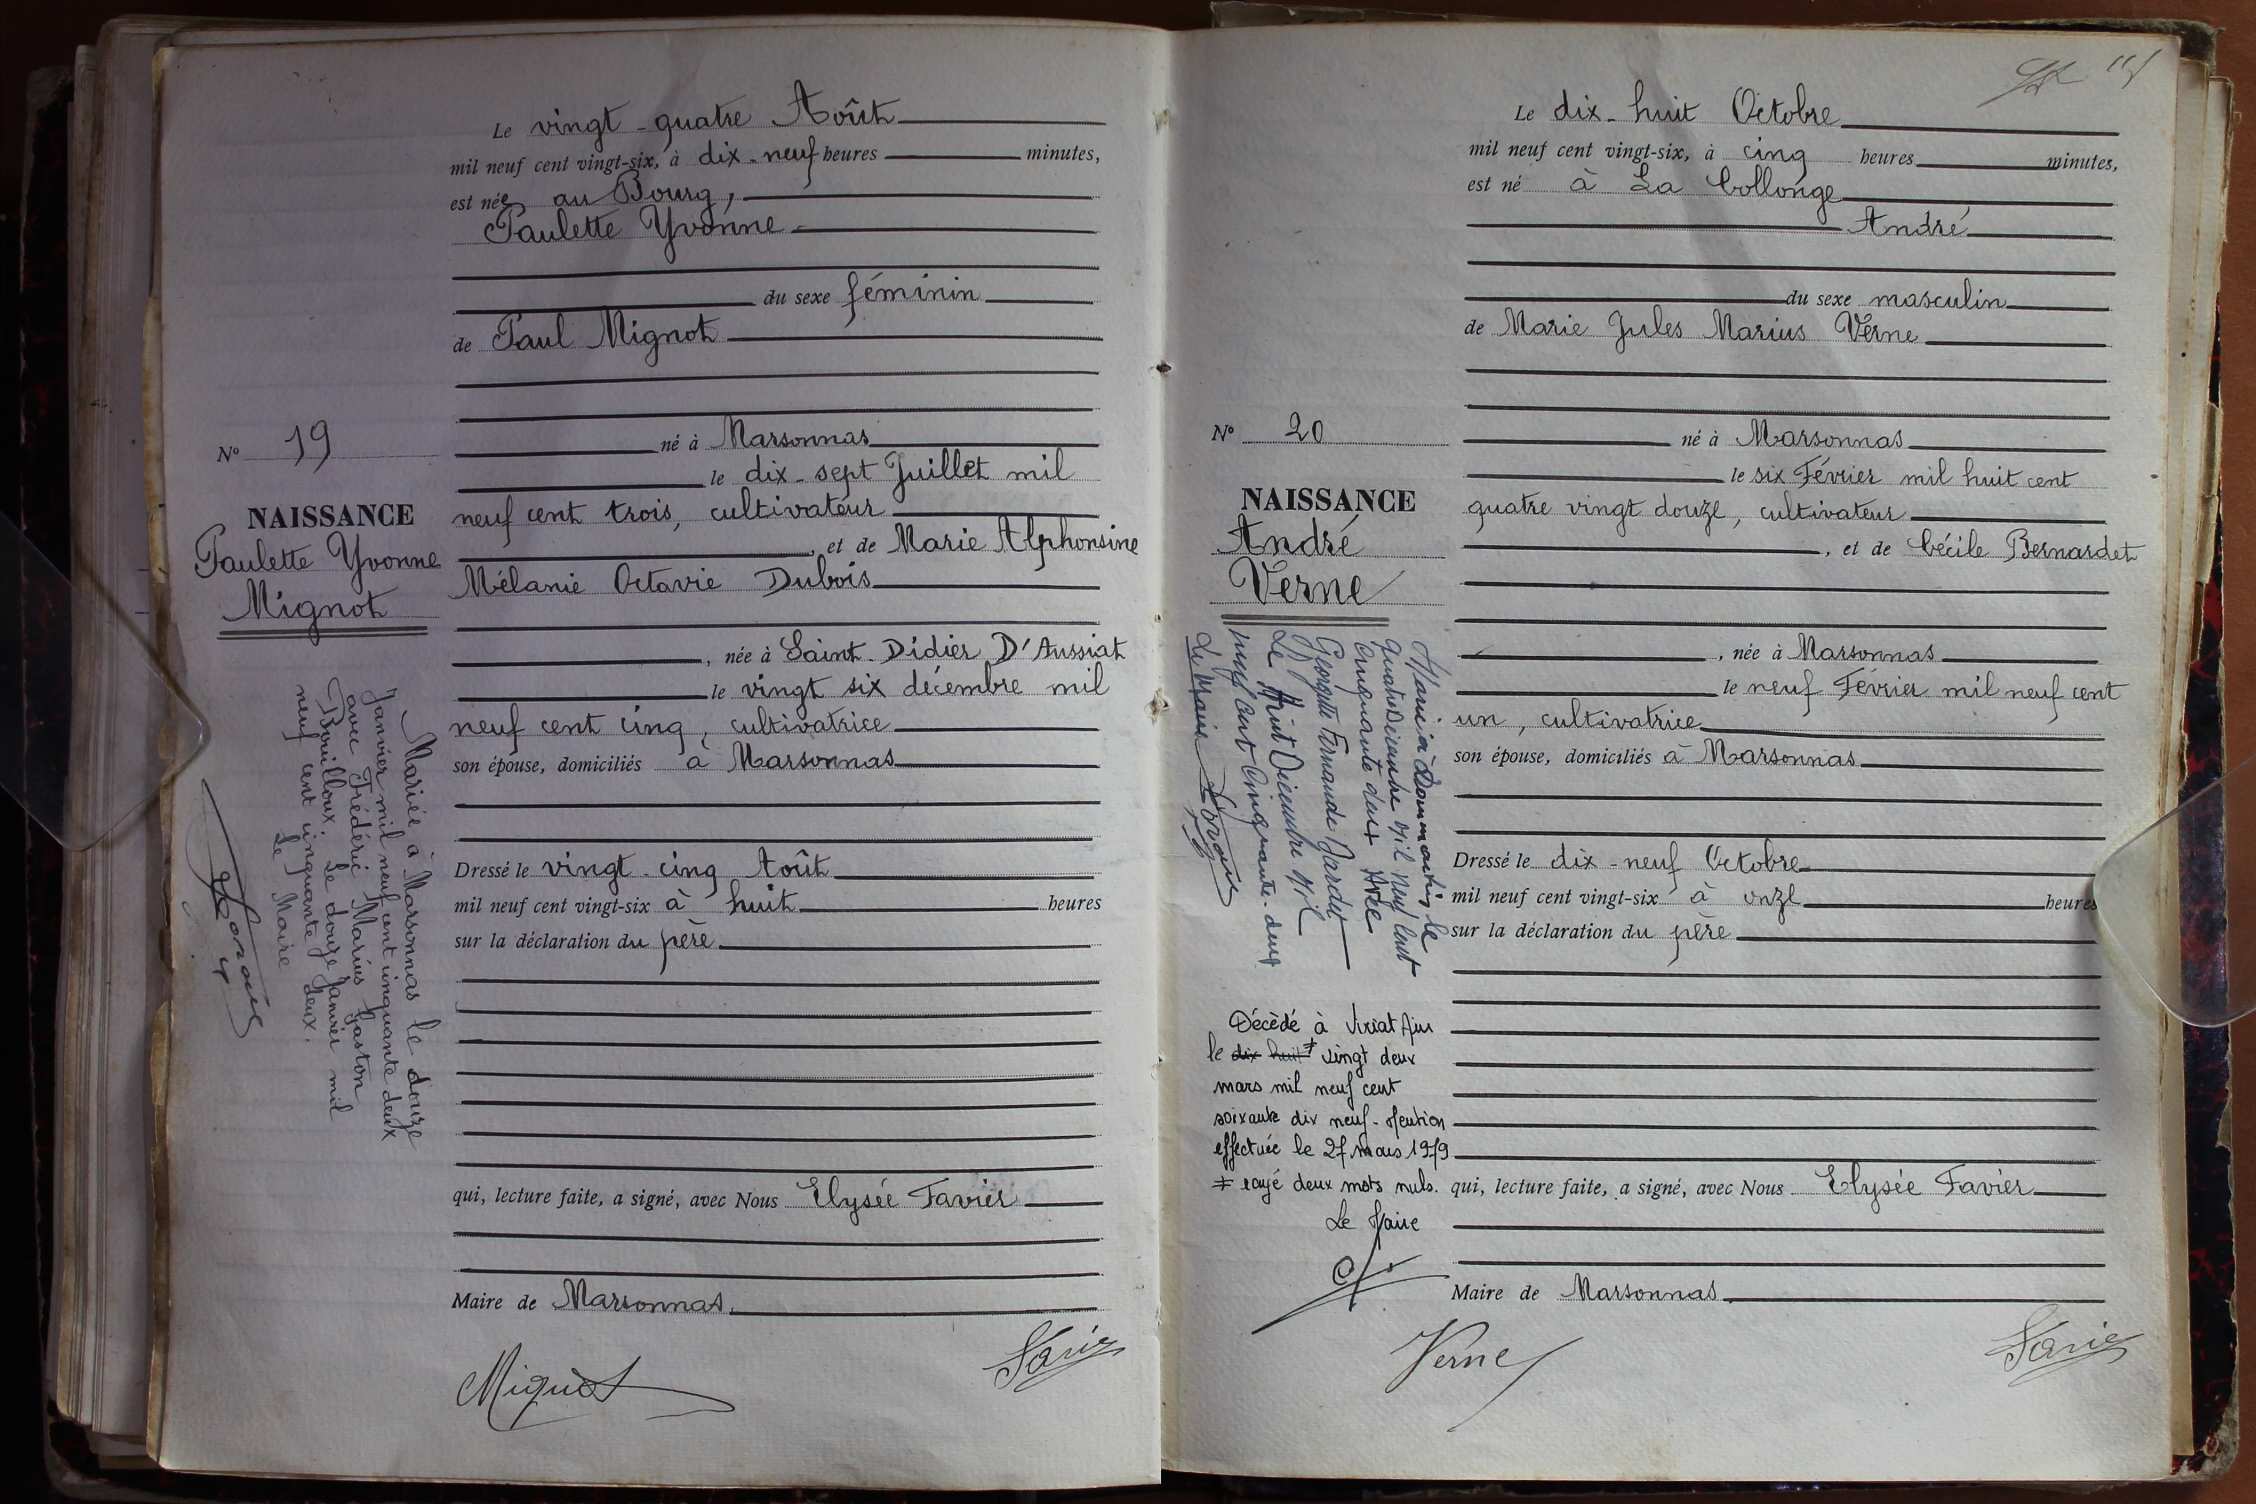 Le vingt-quatre Août
mil neuf cent vingt-six, à dix-neuf heures minutes,
est née au Bourg,
Paulette Yvonne
du sexe féminin
de Paul Mignot
né à Marsonnas
le dix-sept Juillet mil
neuf cent trois, cultivateur
, et de Marie Alphonsine
Mélanie Octavie Dubois
, née à Saint-Didier D'Aussiat
le vingt six décembre mil
neuf cent cinq, cultivatrice
son épouse, domiciliés à Marsonnas
Dressé le vingt-cinq Août
mil neuf cent vingt-six à huit heures
sur la déclaration du père
qui, lecture faite, a signé, avec Nous Elysée Favier
Maire de Marsonnas.
Mignot
Favier
N° 19
NAISSANCE
Paulette Yvonne
Mignot
Mariée à Marsonnas le douze
Janvier mil neuf cent cinquante deux
avec Frédéric Marius Gaston
Bouilloux. Le douze Janvier mil
neuf cent cinquante deux.
Le Maire
Le dix-huit Octobre
mil neuf cent vingt-six, à cinq heures minutes,
est né à La Collonge
André
du sexe masculin
de Marie Jules Marius Verne
né à Marsonnas
le six Février mil huit cent
quatre vingt douze, cultivateur
, et de Cécile Bernardet
, née à Marsonnas
le neuf Février mil neuf cent
un, cultivatrice
son épouse, domiciliés à Marsonnas
Dressé le dix-neuf Octobre
mil neuf cent vingt-six à onze heures
sur la déclaration du père
qui, lecture faite, a signé, avec Nous Elysée Favier
Maire de Marsonnas
Verne
Favier
N° 20
NAISSANCE
André
Verne
Marié à Dommartin le
quatre Décembre Mil Neuf Cent
Cinquante deux Avec
Georgette Fernande Jardy
Le Huit Décembre Mil
neuf Cent Cinquante-deux
Le Maire
Décédé à Viriat Ain
le dix huit ≠ vingt deux
mars mil neuf cent
soixante dix neuf - Mention
effectuée le 27 mars 1979
≠ rayé deux mots nuls.
Le Maire